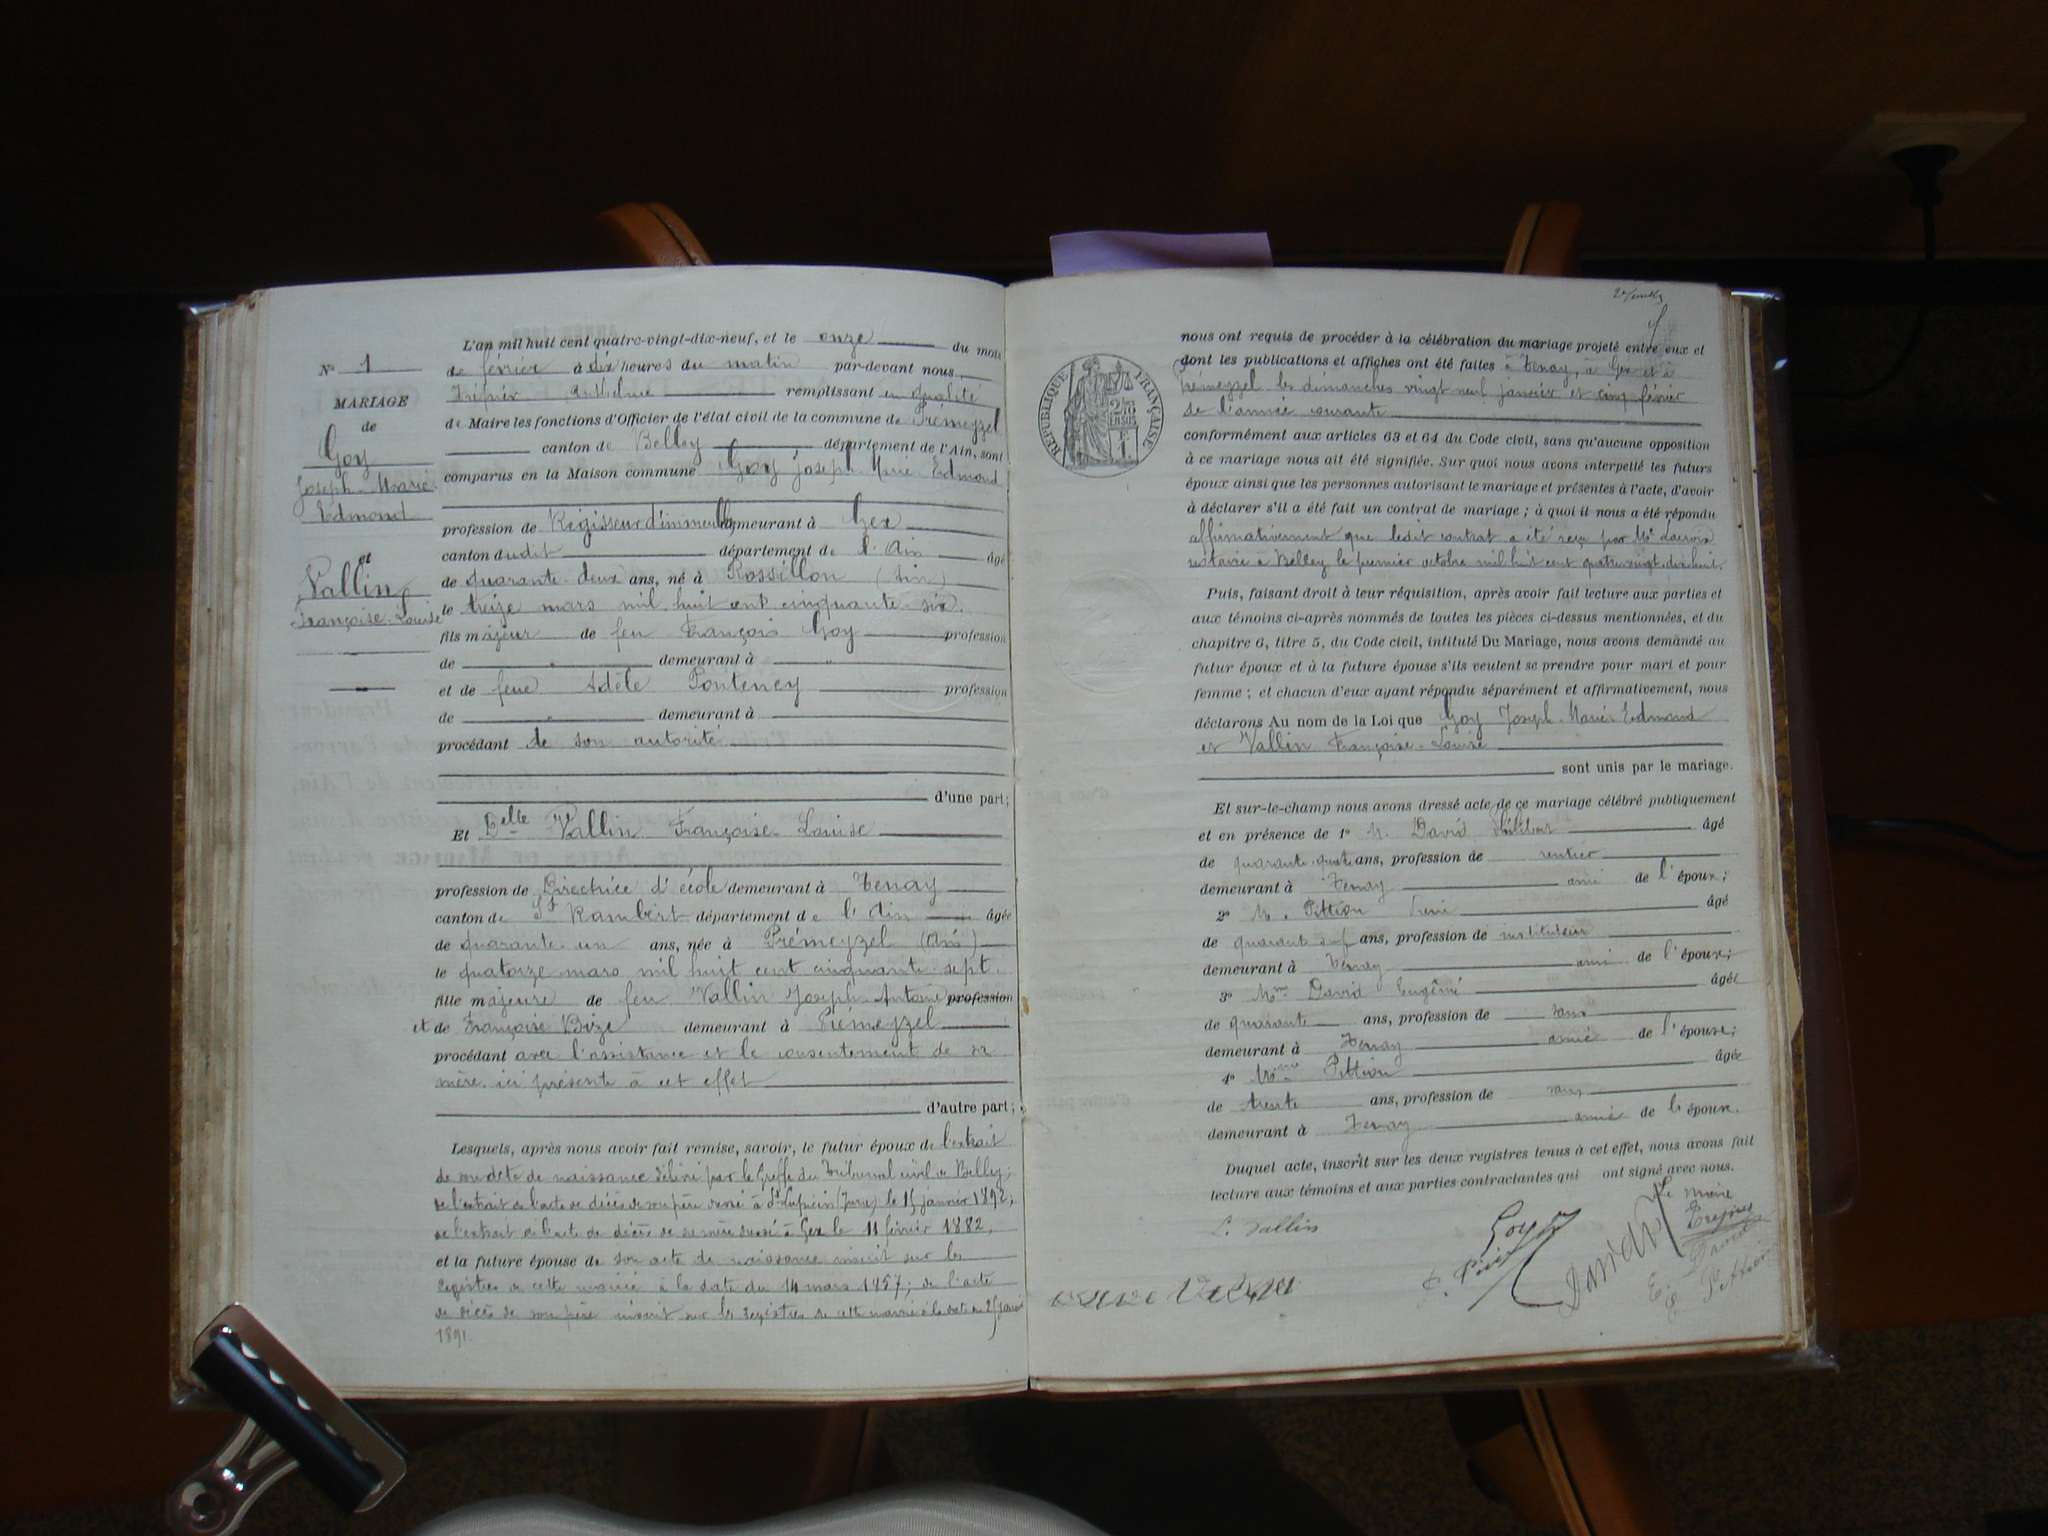 L'an mil huit cent quatre-vingt-dix-neuf, et le onze du mois
de février à dix heures du matin par-devant nous
Trépier remplissant en qualité
de Maire les fonctions d'Officier de l'état civil de la commune de Prémeyzel
canton de Belley département de l'Ain, sont
comparus en la Maison commune Goy Joseph-Marie-Edmond
profession de Régisseur d'immeubles demeurant à Gex
canton dudit département de l'Ain âgé
de quarante-deux ans, né à Rossillon (Ain)
le treize mars mil huit cent cinquante-six.
fils majeur de feu François Goy profession
de " demeurant à "
et de feue Adèle Ponteney profession
de " demeurant à
procédant de son autorité
d'une part;
Et Delle Vallin Françoise-Louise
profession de Directrice d'école demeurant à Tenay
canton de St Rambert département de l'Ain âgée
de quarante-un ans, née à Prémeyzel (Ain)
le quatorze mars mil huit cent cinquante-sept.
fille majeure de feu Vallin Joseph-Antoine profession
et de Françoise Bize demeurant à Prémeyzel
procédant avec l'assistance et le consentement de sa
mère ici présente à cet effet
d'autre part;
Lesquels, après nous avoir fait remise, savoir, le futur époux de l'extrait
de son acte de naissance délivré par le Greffe du Tribunal civil de Belley;
de l'extrait de l'acte de décès de son père à St (Jura) le 15 janvier 1892,
de l'extrait de l'acte de décès de sa mère à Gex le 11 février 1882,
et la future épouse de son acte de naissance inscrit sur les
registres de cette mairie à la date du 14 mars 1857; de l'acte
de décès de son père inscrit sur les registres de cette mairie à la date du 25 janvier
1891.
N° 1
MARIAGE
de
Goy
Joseph-Marie-
Edmond
et
Vallin
Françoise-Louise
2e feuille
nous ont requis de procéder à la célébration du mariage projeté entre eux et
dont les publications et affiches ont été faites à Tenay, à Gex et à
Prémeyzel les dimanches vingt-neuf janvier et cinq février
de l'année courante
conformément aux articles 63 et 64 du Code civil, sans qu'aucune opposition
à ce mariage nous ait été signifiée. Sur quoi nous avons interpellé les futurs
époux ainsi que les personnes autorisant le mariage et présentes à l'acte, d'avoir
à déclarer s'il a été fait un contrat de mariage; à quoi il nous a été répondu
affirmativement que ledit contrat a été reçu par Me Lacroix
notaire à Belley le premier octobre mil huit cent quatre-vingt-dix-huit.
Puis, faisant droit à leur réquisition, après avoir fait lecture aux parties et
aux témoins ci-après nommés de toutes les pièces ci-dessus mentionnées, et du
chapitre 6, titre 5, du Code civil, intitulé Du Mariage, nous avons demandé au
futur époux et à la future épouse s'ils veulent se prendre pour mari et pour
femme; et chacun d'eux ayant répondu séparément et affirmativement, nous
déclarons Au nom de la Loi que Goy Joseph-Marie-Edmond
et Vallin Françoise-Louise
sont unis par le mariage.
Et sur-le-champ nous avons dressé acte de ce mariage célébré publiquement
et en présence de 1° M. David âgé
de quarante-quatre ans, profession de rentier
demeurant à Tenay ami de l'époux;
2° M. Pittion âgé
de quarante-neuf ans, profession de instituteur
demeurant à Tenay ami de l'époux;
3° Mme David Eugénie âgée
de quarante ans, profession de sans
demeurant à Tenay amie de l'épouse;
4° Mme Pittion âgée
de trente ans, profession de sans
demeurant à Tenay amie de l'épouse.
Duquel acte, inscrit sur les deux registres tenus à cet effet, nous avons fait
lecture aux témoins et aux parties contractantes qui ont signé avec nous.
Le maire
Trépier
L. Vallin
Goy
David
E. David
E. Pittion
RÉPUBLIQUE FRANÇAISE